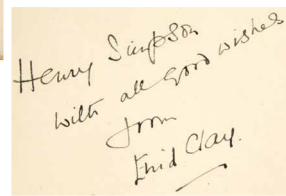 Henry Simpson
with all good wishes
from
Enid Clay.